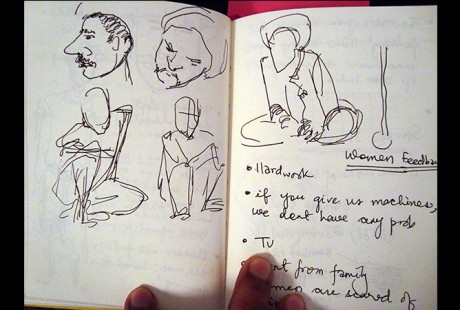 Women Feedba
• Hardwork
• if you give us machines,
we dont have any prob
• TV
nt from family
men are scared of